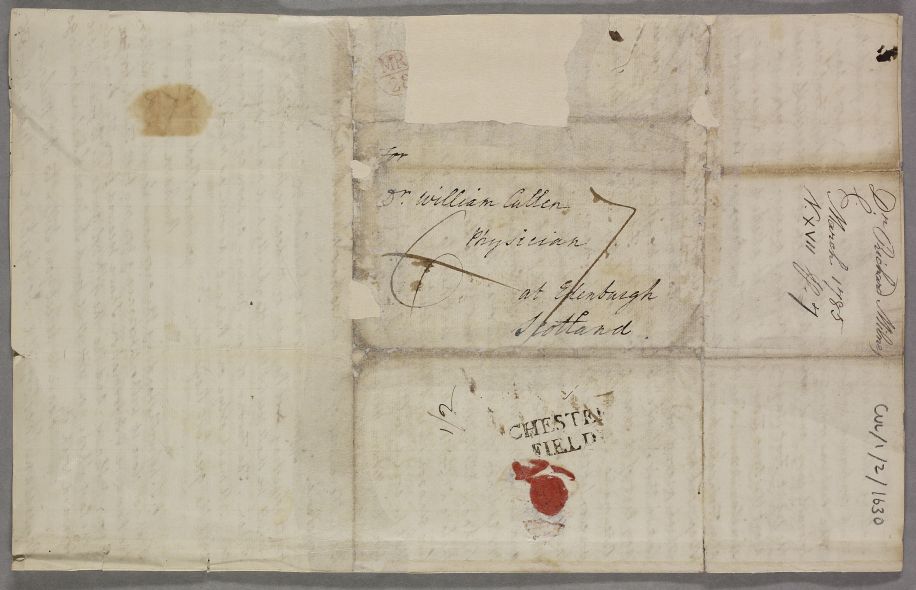 MR
28
For
Dr. William Cullen
Physician
at Edenburgh
Scotland.
7
1/2
CHESTER
FIELD
Dr Richard Milnes
March 1785
N XVII
CUL/1/2/1630